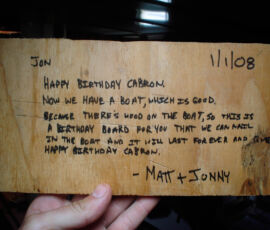 JON 1/1/08
HAPPY BIRTHDAY CABRON.
NOW WE HAVE A BOAT, WHICH IS GOOD.
BECAUSE THERE'S WOOD ON THE BOAT, SO THIS IS
A BIRTHDAY BOARD FOR YOU THAT WE CAN NAIL
IN THE BOAT AND IT WILL LAST FOREVER AND
HAPPY BIRTHDAY CABRON.
- MATT + JONNY